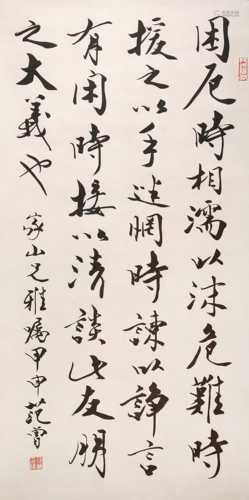 困厄時相濡以沫危難時
援之以手迷惘時諫以諍言
有闲時接以清談此友朋
之大義也
家山兄雅屬甲申范曾